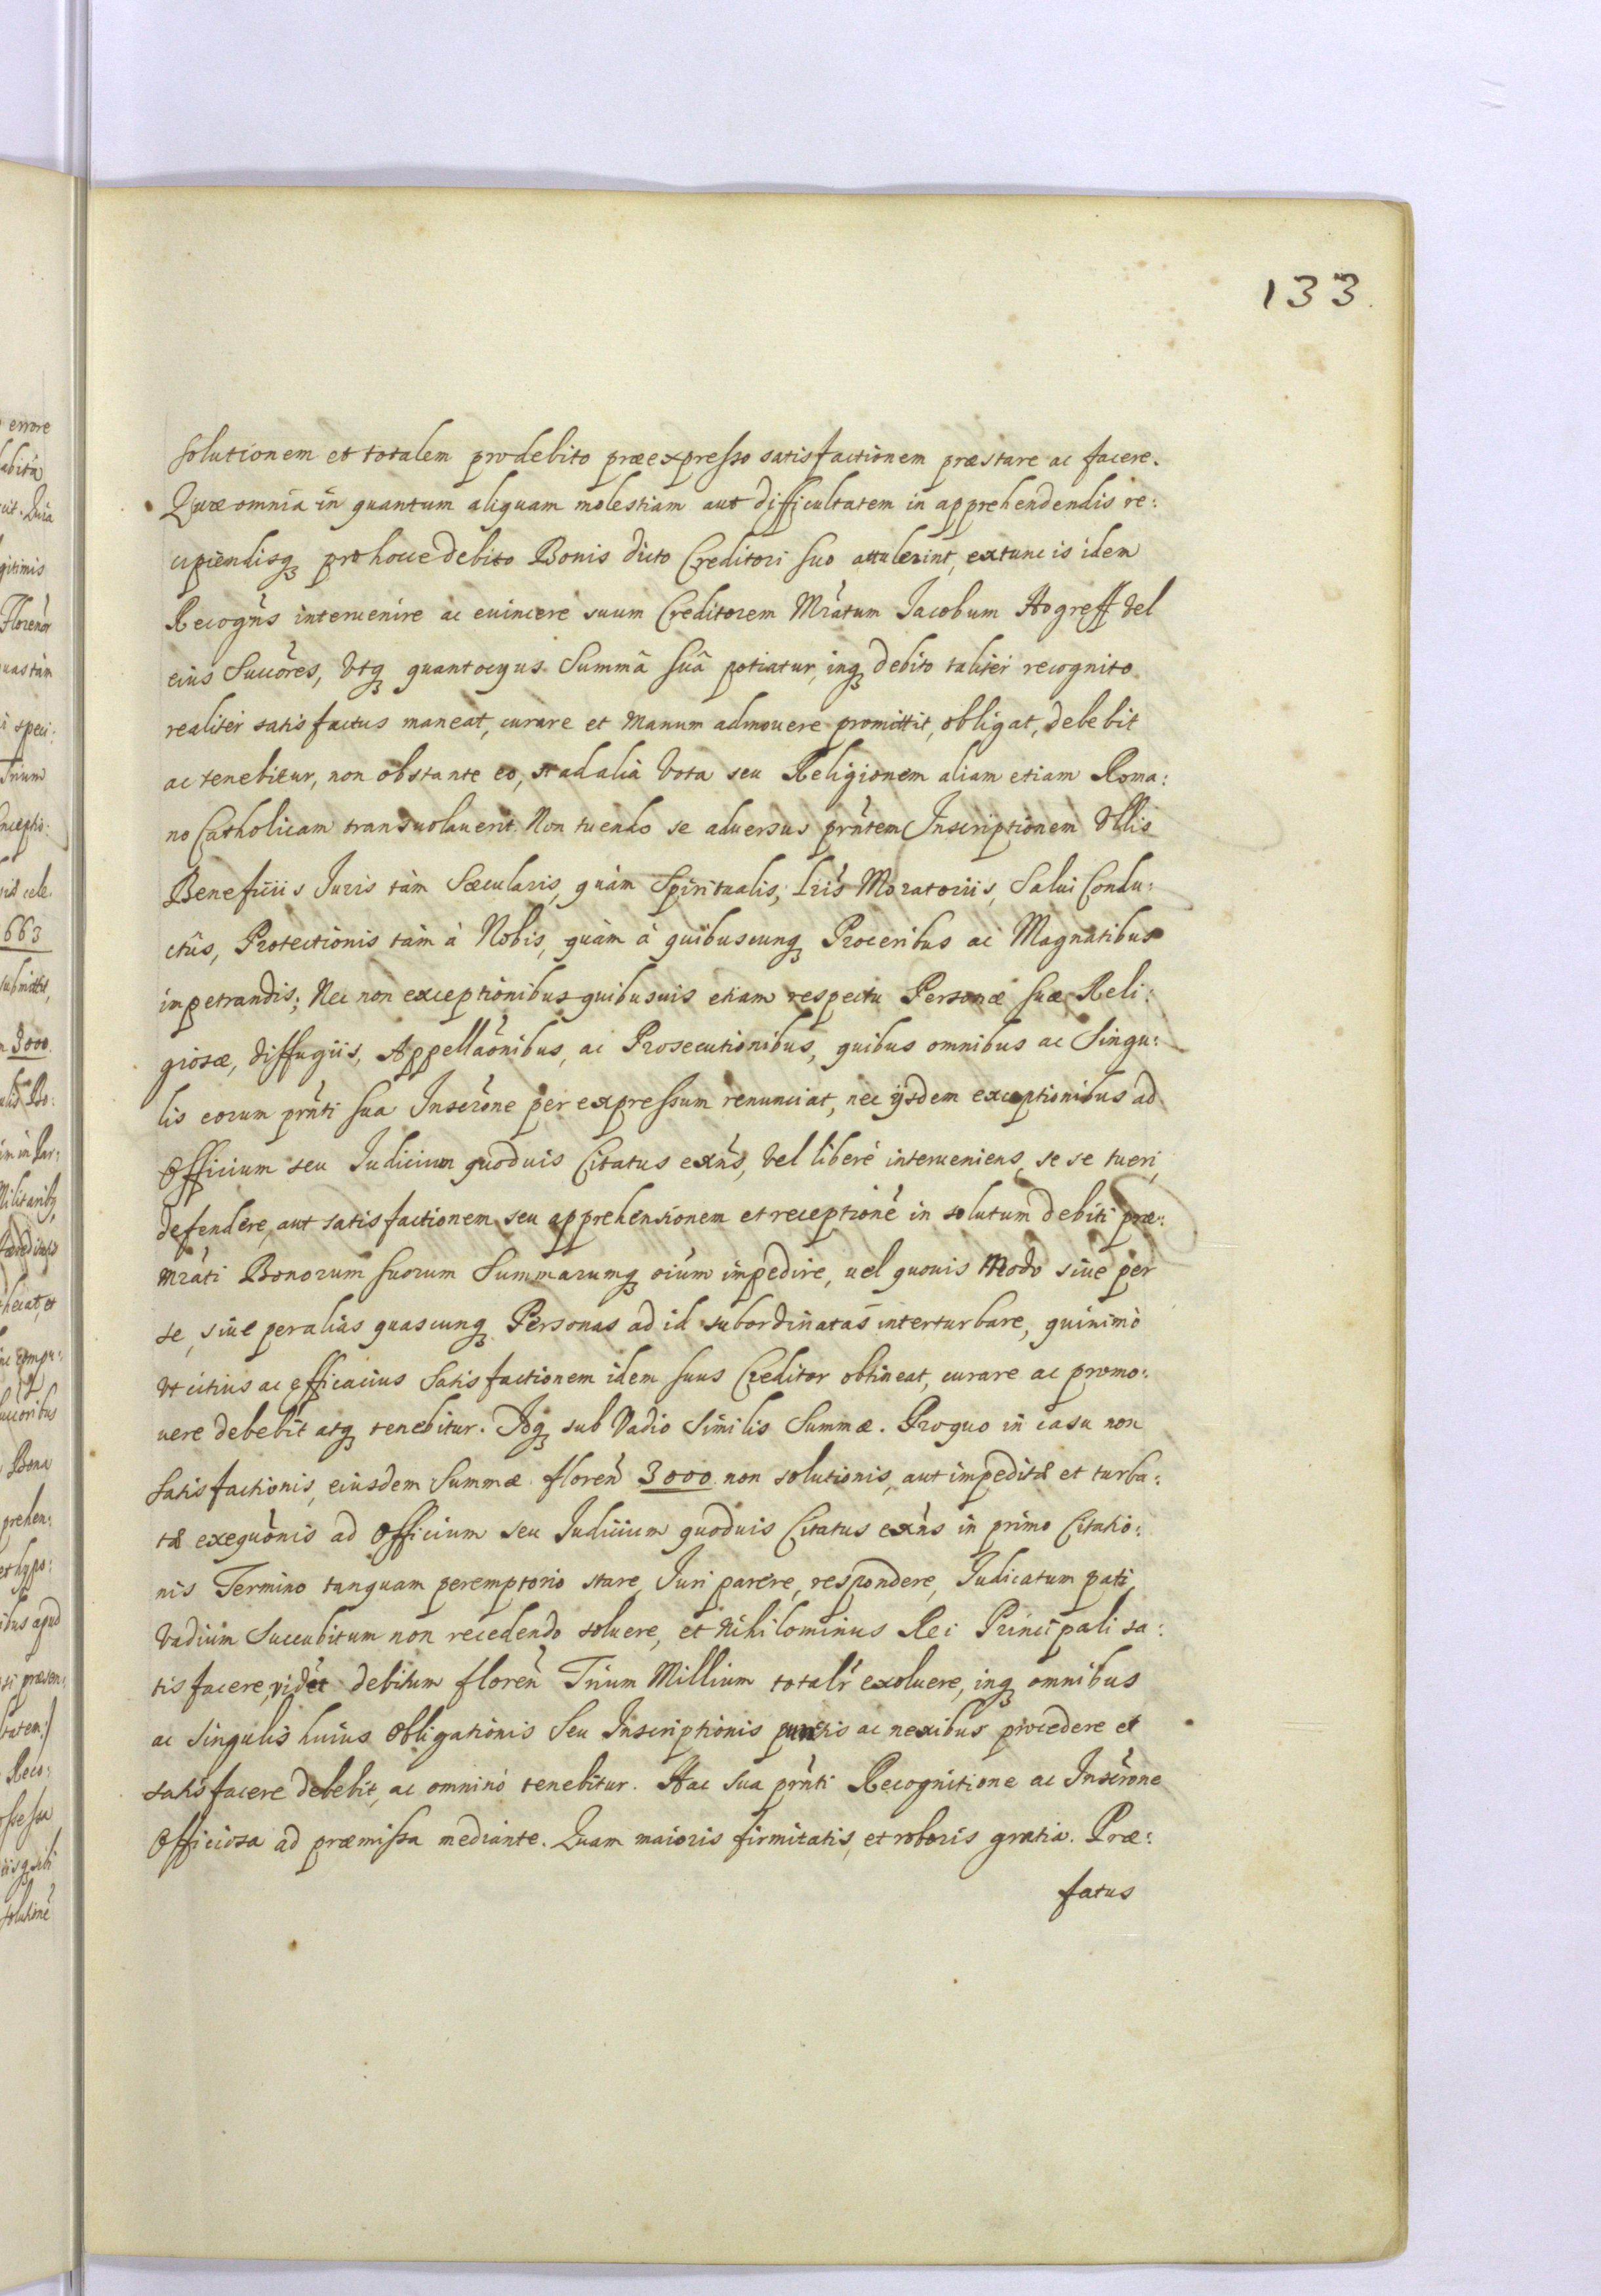 133.
solutionem et totalem pro debito præexpresso satisfactionem præstare ac facere.
Quæ omnia in quantum aliquam molestiam aut difficultatem in apprehendendis re:
cipiendisq₃ pro hocce debito Bonis dicto Creditori suo attulerint, extunc is idem
Recogn̄s interuenire ac euincere suum Creditorem Mr̄atum Jacobum Hogreff vel
eius Succōres, Vtq₃ quantocyus Summâ suâ potiatur, inq₃ debito taliter recognito
realiter satisfactus maneat, curare et Manum admouere promittit, obligat, debebit
ac tenebitur, non obstante eo, si ad alia Vota seu Religionem aliam etiam Roma:
no Catholicam transuolauerit. Non tuendo se aduersus prn̄tem Inscriptionem Vllis
Beneficiis Juris tàm Sæcularis, quàm Spiritualis, Lr̄is Moratoriis, Salui Condu:
ctûs, Protectionis tàm à Nobis, quàm à quibuscunq₃ Proceribus ac Magnatibus
impetrandis; Nec non exceptionibus quibusuis etiam respectu Personæ suæ Reli:
giosæ, diffugiis, Appellāonibus, ac Prosecutionibus, quibus omnibus ac Singu:
lis eorum prn̄ti sua Inscr̄one per expressum renunciat, nec ijsdem exceptionibus ad
Officium seu Judicium quoduis Citatus exn̄s, Vel liberè interueniens, se se tueri,
defendere, aut satisfactionem seu apprehensionem et receptionē in solutum debiti præ:
mr̄ati Bonorum suorum Summarumq₃ oīum impedire, uel quouis Modo siue per
se, siue per alias quascunq₃ Personas ad id subordinatas interturbare, quinimò
Vt citius ac efficacius Satisfactionem idem suus Creditor obtineat, curare ac promo:
uere debebit atq₃ tenebitur. Idq₃ sub Vadio Similis Summæ. Pro quo in casu non
Satisfactionis, eiusdem Summæ floren̄ 3000 non solutionis, aut impeditæ et turba:
tæ exequōnis ad Officium seu Judicium quoduis Citatus exn̄s in primo Citatio:
nis Termino tanquam peremptorio stare, Juri parere, respondere, Judicatum pati
Vadium Succubitum non recedendo soluere, et Nihilominus Rei Principali sa:
tisfacere, vidēt debitum floren̄ Trium Millium totalr̄ exoluere, inq₃ omnibus
ac Singulis huius Obligationis Seu Inscriptionis punctis ac nexibus procedere et
satisfacere debebit, ac omninò tenebitur. Hac Sua prn̄ti Recognitione ac Inscr̄one
Officiosa ad præmissa mediante. Quam maioris firmitatis, et roboris gratia. Præ:
fatus